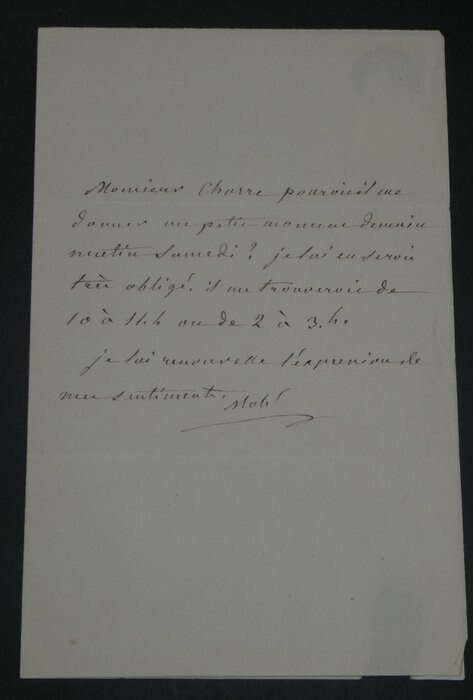 Monsieur Charre pouroit il me
donner un petit moment demain
matin Samedi? je lui en serois
très obligé. il me trouveroit de
10 à 11.h ou de 2 à 3.h.
je lui renouvelle l'expression de
mes sentiments.